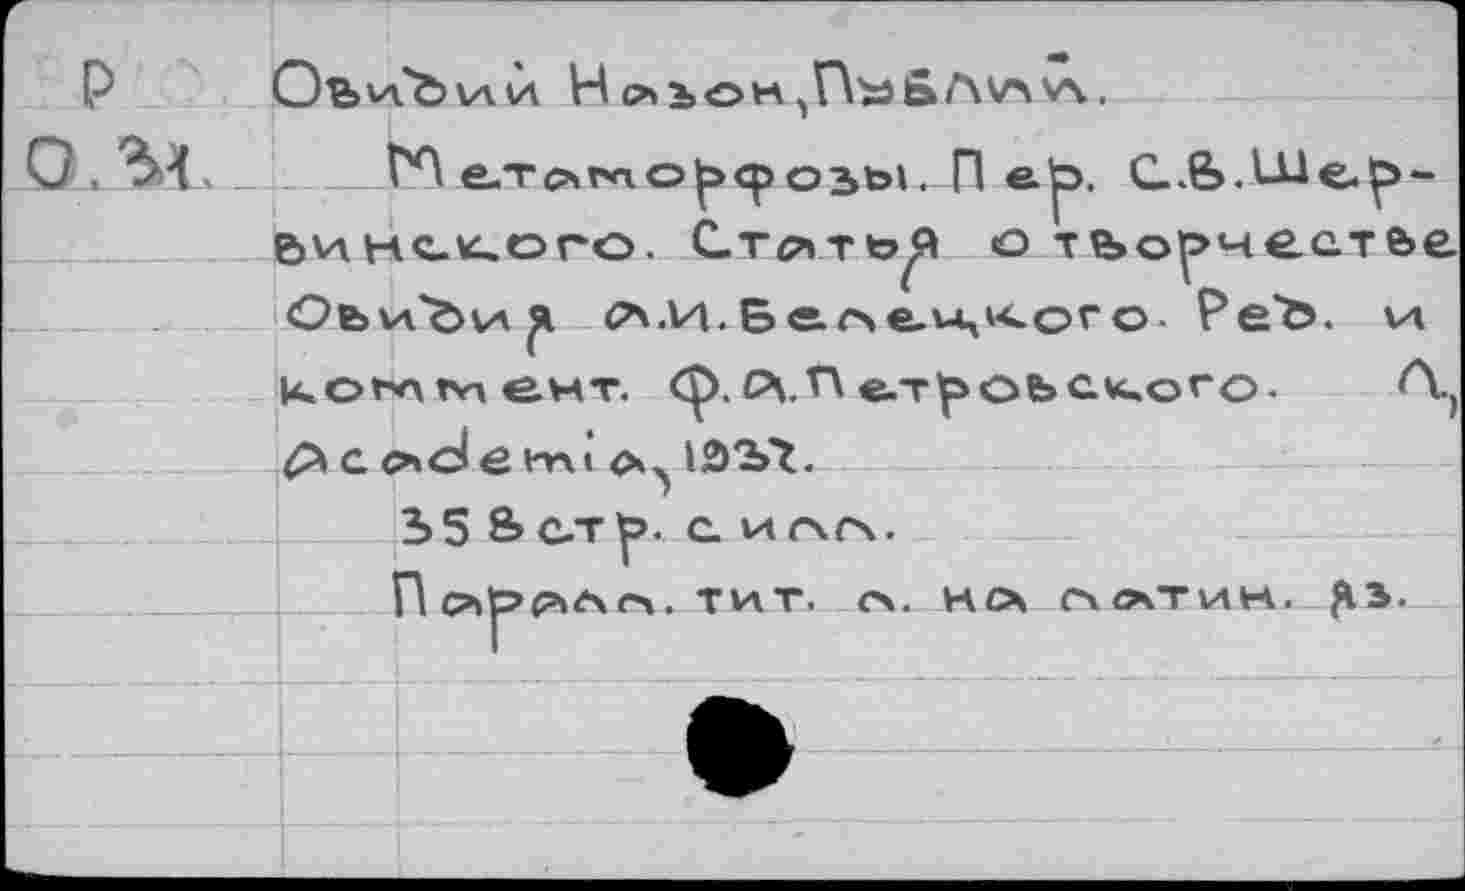 Р Овидий Назон, Публий.
О.34. Метаморфозы. Пер. С.В.Шер-
винского. Статья о творчестве
Овидия А.И.Белецкого. Ред. и
коммент. Ф.А.Петровского. Л.,
Academia, 1937.
358 стр. с илл.
Паралл. тит. л. на латин. яз.